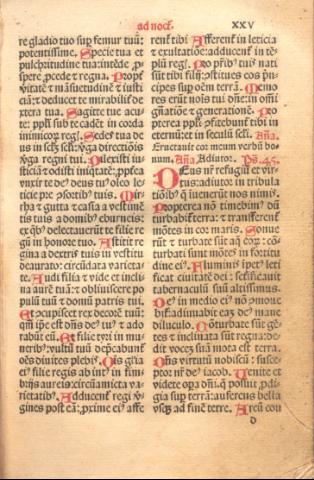 ad noct̄.
XXV
re gladio tuo sup femur tuū:
potentissime. Specie tua et
pulchritudine tua: intēde, p̄
spere, pcede et regna. Propt̄
v̄itatē et māsuetudinē et iusti
ciā: et deducet te mirabilit̄ de
xtera tua. Sagitte tue acu
te: ppli sub te cadēt: in corda
inimicoꝝ reg̃. Sedes tua de
us in sclm̄ scli: v̄ga directiōis
v̄ga regni tui. Dilexisti iu
sticiā et odisti iniqtatē: ppt̄ea
vnxit te deꝰ deus tuꝰ oleo le
ticie pre ꝯsortibꝰ tuis. Mir
rha et gutta et casia a vestimē
tis tuis a domibꝰ eburneis:
ex qbꝰ delectauerūt te filie re
gū in honore tuo. Astitit re
gina a dextris tuis in vestitu
deaurato: circūdata varieta
te. Audi filia et vide et incli
na aurē tuā: et obliuiscere po
pulū tuū et domū patris tui.
Et ꝯcupiscet rex decorē tuū:
qm̄ ipe est dn̄s deꝰ tuꝰ et ado
rabūt eū. Et filie tyri in mu
neribꝰ: vultū tuū depcabunt̄
oēs diuites plebis. Ois gl̄ia
eiꝰ filie regis ab intꝰ in fim
brijs aureis: circūamicta va
rietatibꝰ. Adducent̄ regi v̄
gines post eā: pxime eiꝰ affe
rent̄ tibi. Afferent̄ in leticia
et exultatiōe: adducent̄ in tē
plū reg̃. Pro pr̄ibꝰ tuis nati
sūt tibi filij: ꝯstitues eos pn̄
cipes sup oēm terrā. Memo
res erūt nois tui dn̄e: in omi
gn̄atiōe et generationē. Pro
pterea ppli ꝯfitebunt̄ tibi in
eternū: et in seculū scli. Aña.
Eructauit cor meum verbū bo-
num. Aña Adiutor. Ps. 45.
Deus nr̄ refugiū et vir-
tus: adiutor in tribula
tiōibꝰ q̄ inuenerūt nos nimis.
Propterea nō timebimꝰ dū
turbabit̄ terra: et transferent̄
mōtes in cor maris. Sonue
rūt et turbate sūt aq̄ eoꝝ: cō-
turbati sunt mōtes in fortitu
dine eiꝰ. Fluminis ipetꝰ leti
ficat ciuitatē dei: scificauit
tabernaculū suū altissimus.
Deꝰ in medio eiꝰ nō ꝯmoue
bit̄: adiuuabit eaꝫ deꝰ mane
diluculo. Cōturbate sūt gē-
tes et inclinata sūt regna: de-
dit vocem suā mota est terra.
Dn̄s virtutū nobiscū: susce-
ptor nr̄ deꝰ iacob. Uenite et
videte opa dn̄i: q̄ posuit, pdi-
gia sup terrā: auferens bella
vsqꝫ ad finē terre. Arcū con
d